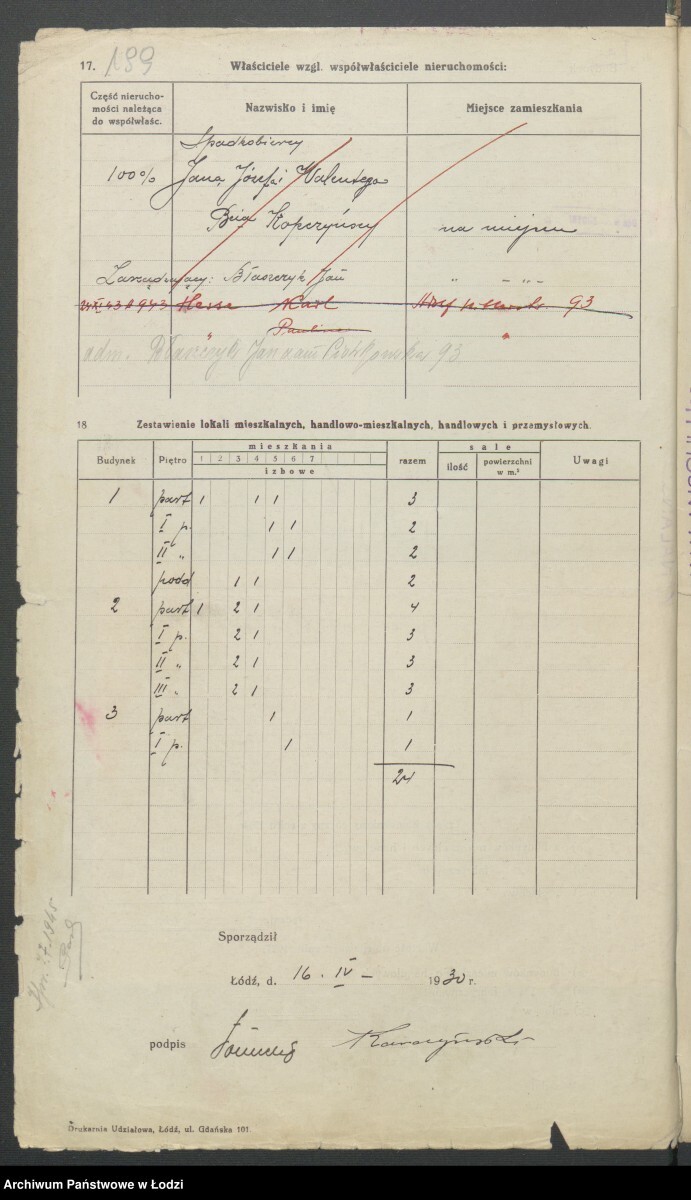 17. 199 Właściciele wzgl. współwłaściciele nieruchomości:
Część nierucho-
mości należąca
do współwłaśc.
Nazwisko i imię
Miejsce zamieszkania
Spadkobiercy
100% Jana, Józefa i Walentego
Bcia Kopczyńscy na miejscu
Zarządzający: Błaszczyk Jan " - " -
43 943 Hesse Karl Adolf 93
" Paulina "
adm. Błaszczyk Jan zam Piotrkowska 93
18 Zestawienie lokali mieszkalnych, handlowo-mieszkalnych, handlowych i przemysłowych.
Budynek Piętro mieszkania razem sale Uwagi
1 2 3 4 5 6 7
izbowe
ilość powierzchni
w m.²
1 part 1 1 1 3
I p. 1 1 2
II " 1 1 2
podd 1 1 2
2 part 1 2 1 4
I p. 2 1 3
II " 2 1 3
III " 2 1 3
3 part 1 1
I p. 1 1
24
Sporządził
Łódź, d. 16. IV - 1930 r.
podpis
Drukarnia Udziałowa, Łódź, ul. Gdańska 101
Archiwum Państwowe w Łodzi